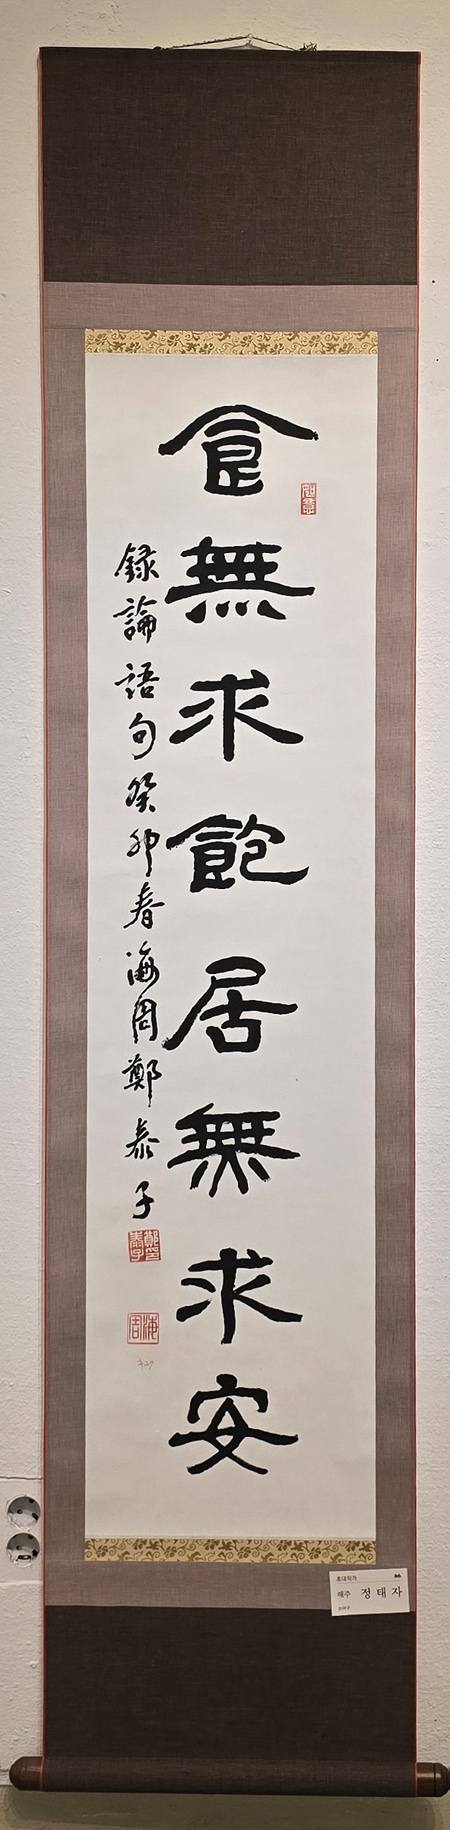 食無求飽居無求安
録論語句癸卯春海周鄭泰子
鄭泰子印
海周
초대작가
해주 정태자